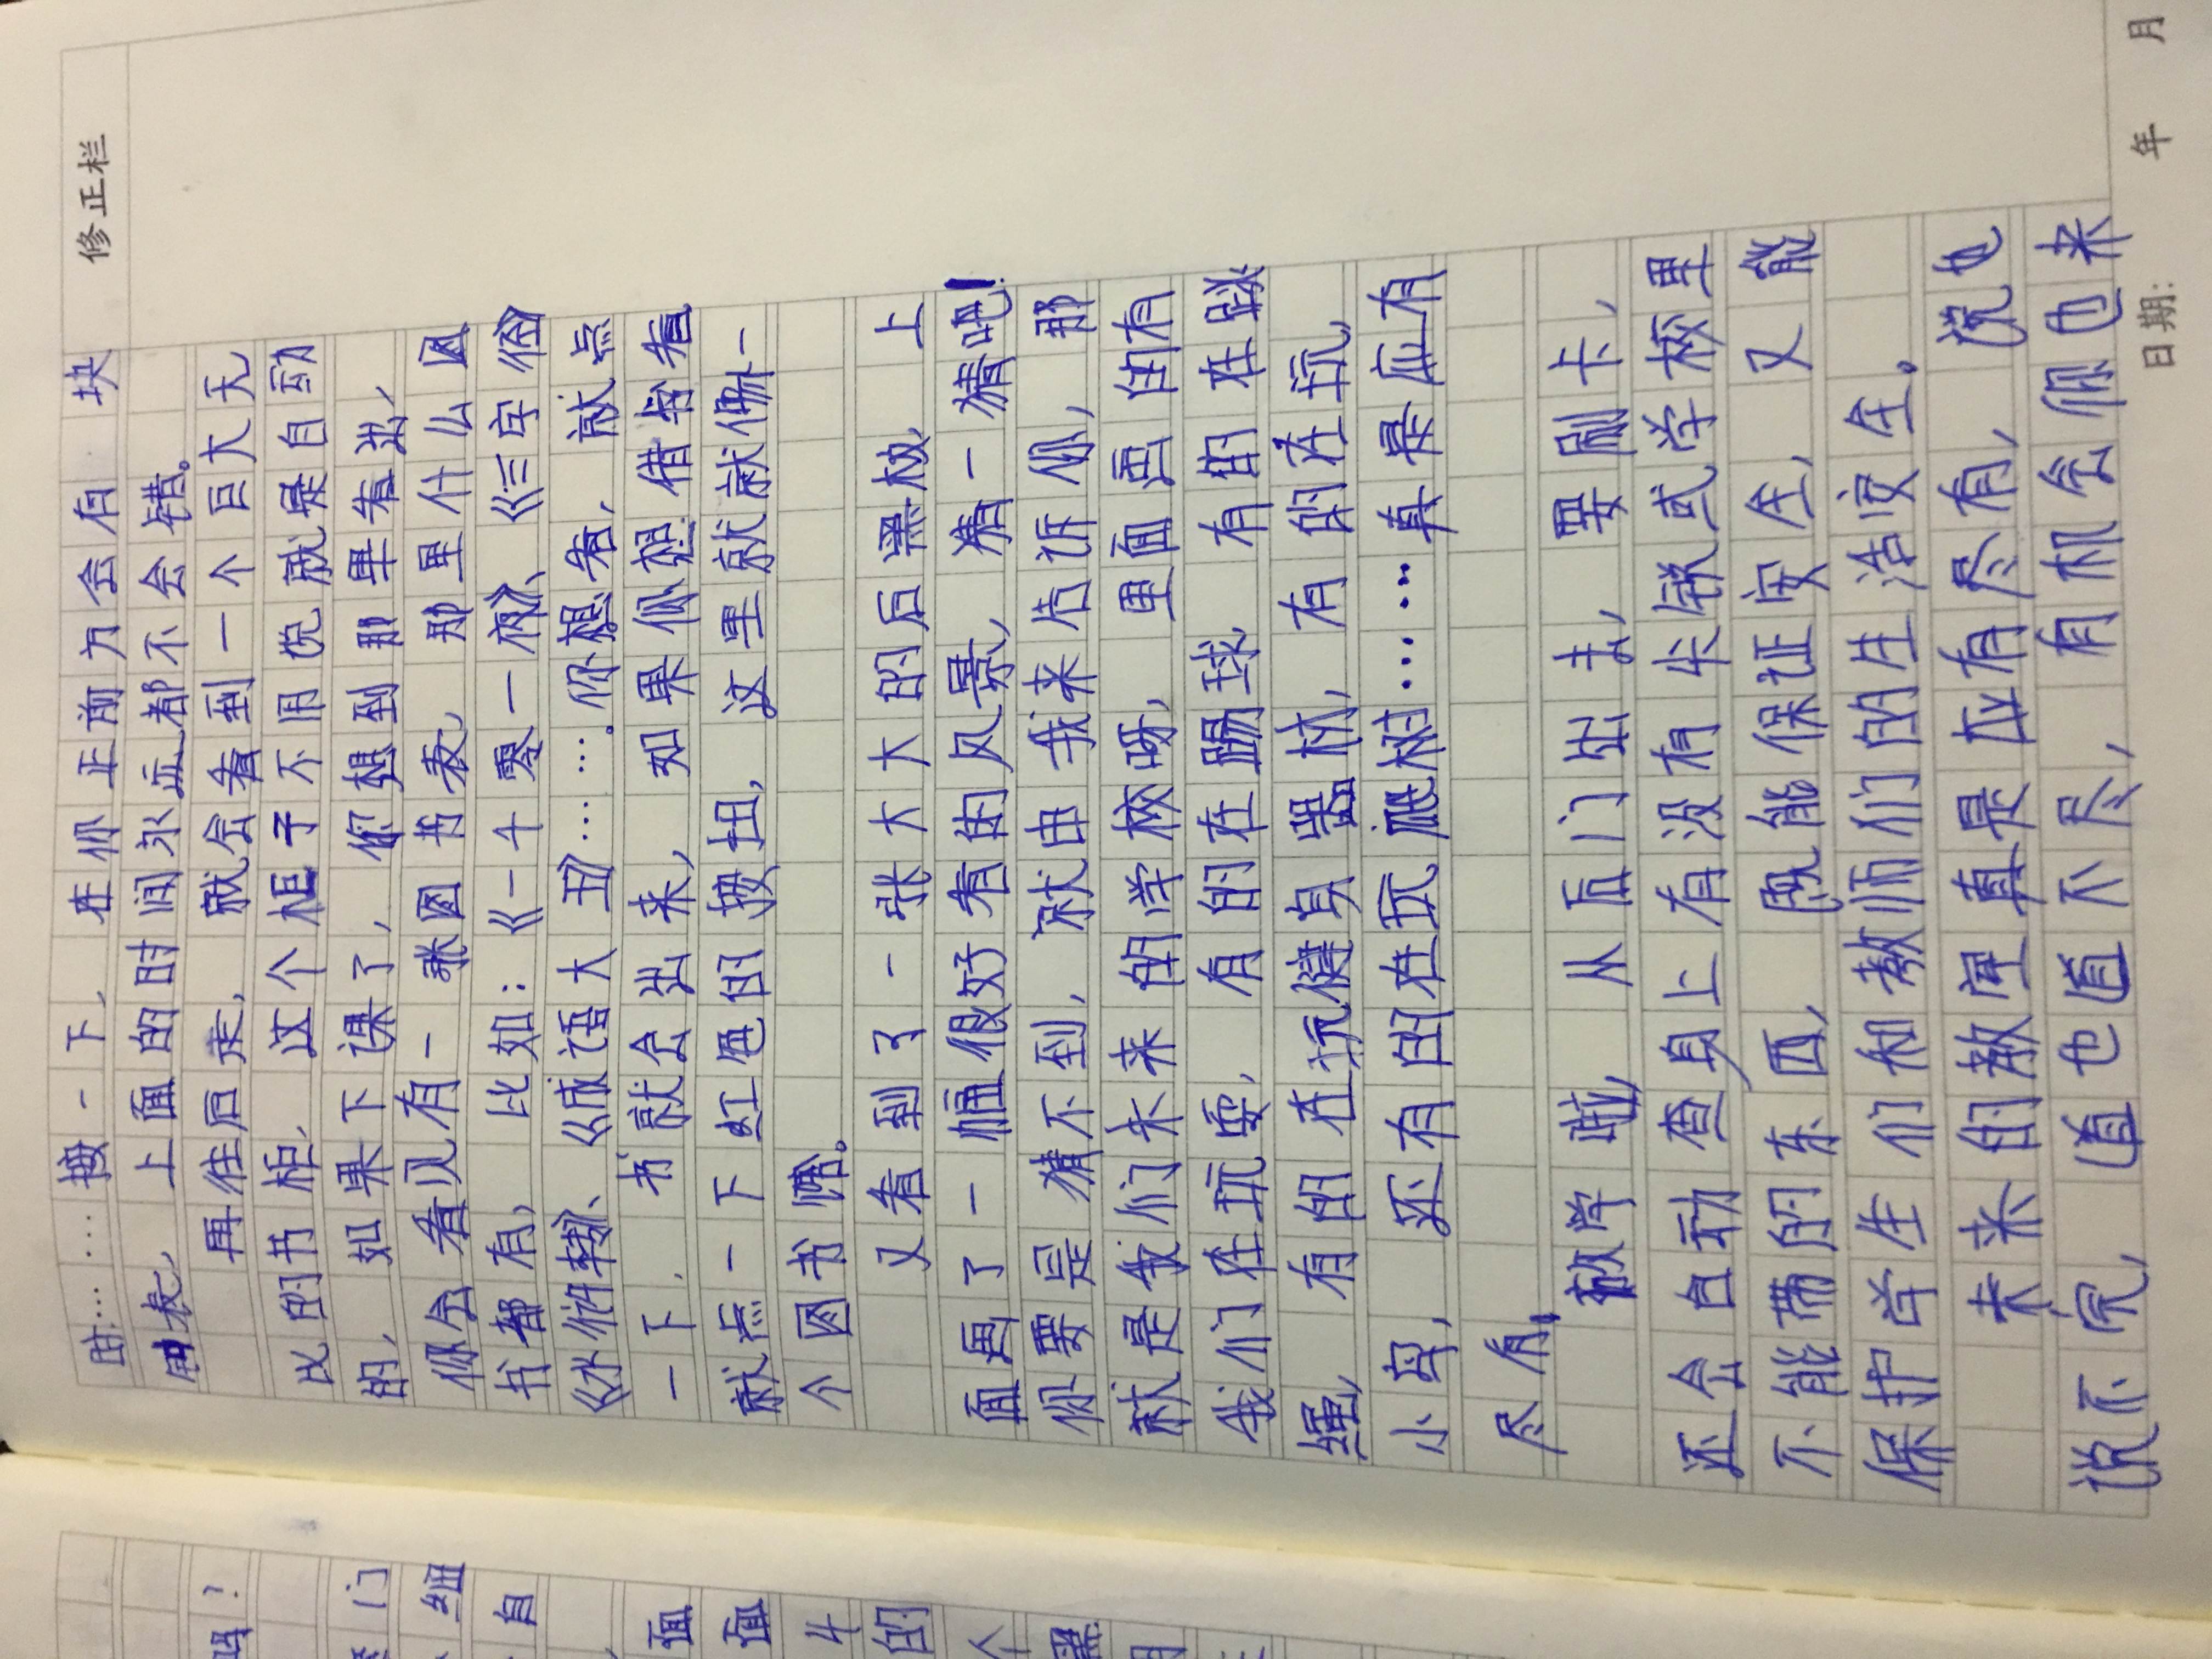 修正栏
由……按一下，在你正前方会有 块
电表，上面的时间永远都不会错。
再往后走，就会看到一个巨大无
比的书柜，这个柜子不用说就是自动
的，如果下课了，你想到那里看书，
你会看见有一张图书表，那里什么图
书都有，比如：《一千零一夜》、《三字经》
《水浒转》、《成语大丑》……你想看，就点
一下，书就会出来，如果你想借书看
就点一下红色的按扭，这里就就像一
个图书馆。
又看到了一张大大的后黑板，上
面画了一幅很好看的风景，猜一猜吧！
你要是猜不到，就由我来告诉你，那
就是我们未来的学校呀，里面画的有
我们在玩耍，有的在踢球，有的在跳
绳，有的在玩健身器材，有的在玩
小鸟，还有的在玩爬树……真是应有
尽有。
放学啦，从后门出去，要刷卡，
还会自动查身上有没有卡锁或学校里
不能带的东西，既能保证安全，又能
保护学生们和教师们的生活安全。
未来的教室真是应有尽有，说也
说不完，道也道不尽，有机会你也来
日期： 年 月
吗？
门
细
自
面
面
斗
的
个
黑